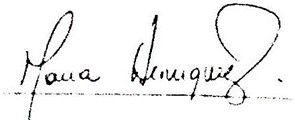 Maria Henriquez.